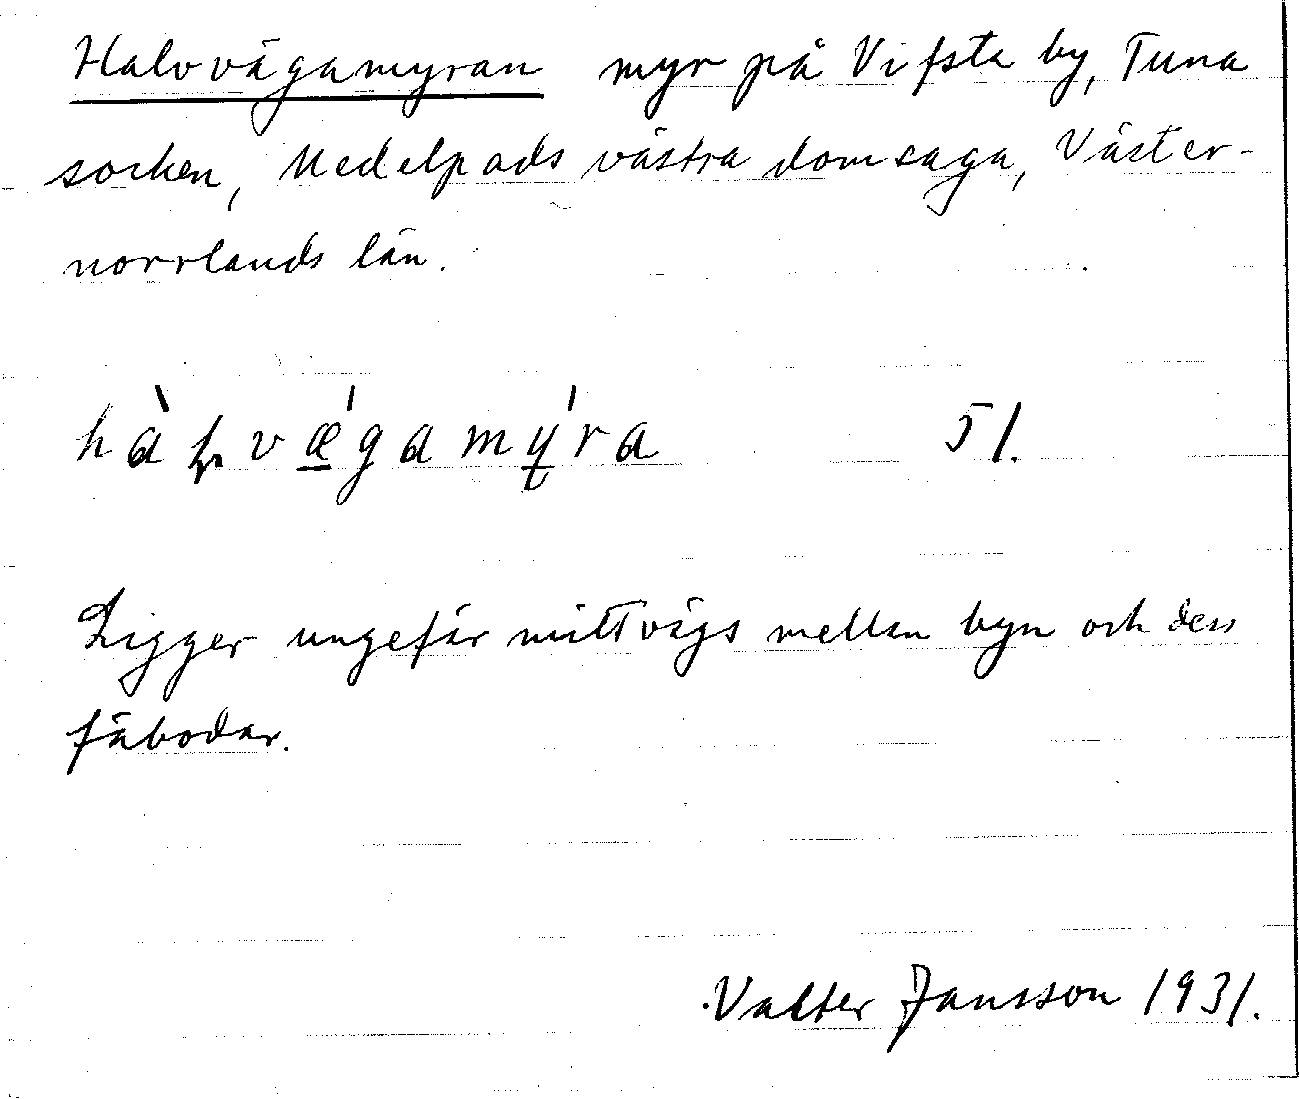 Halvvägamyran myr på Vifsta by, Tuna
socken, Medelpads västra domsaga, Väster-
norrlands län.
hàɫvǽgamýra 51.
Ligger ungefär mittvägs mellan byn och dess
fäbodar.
Valter Jansson 1931.